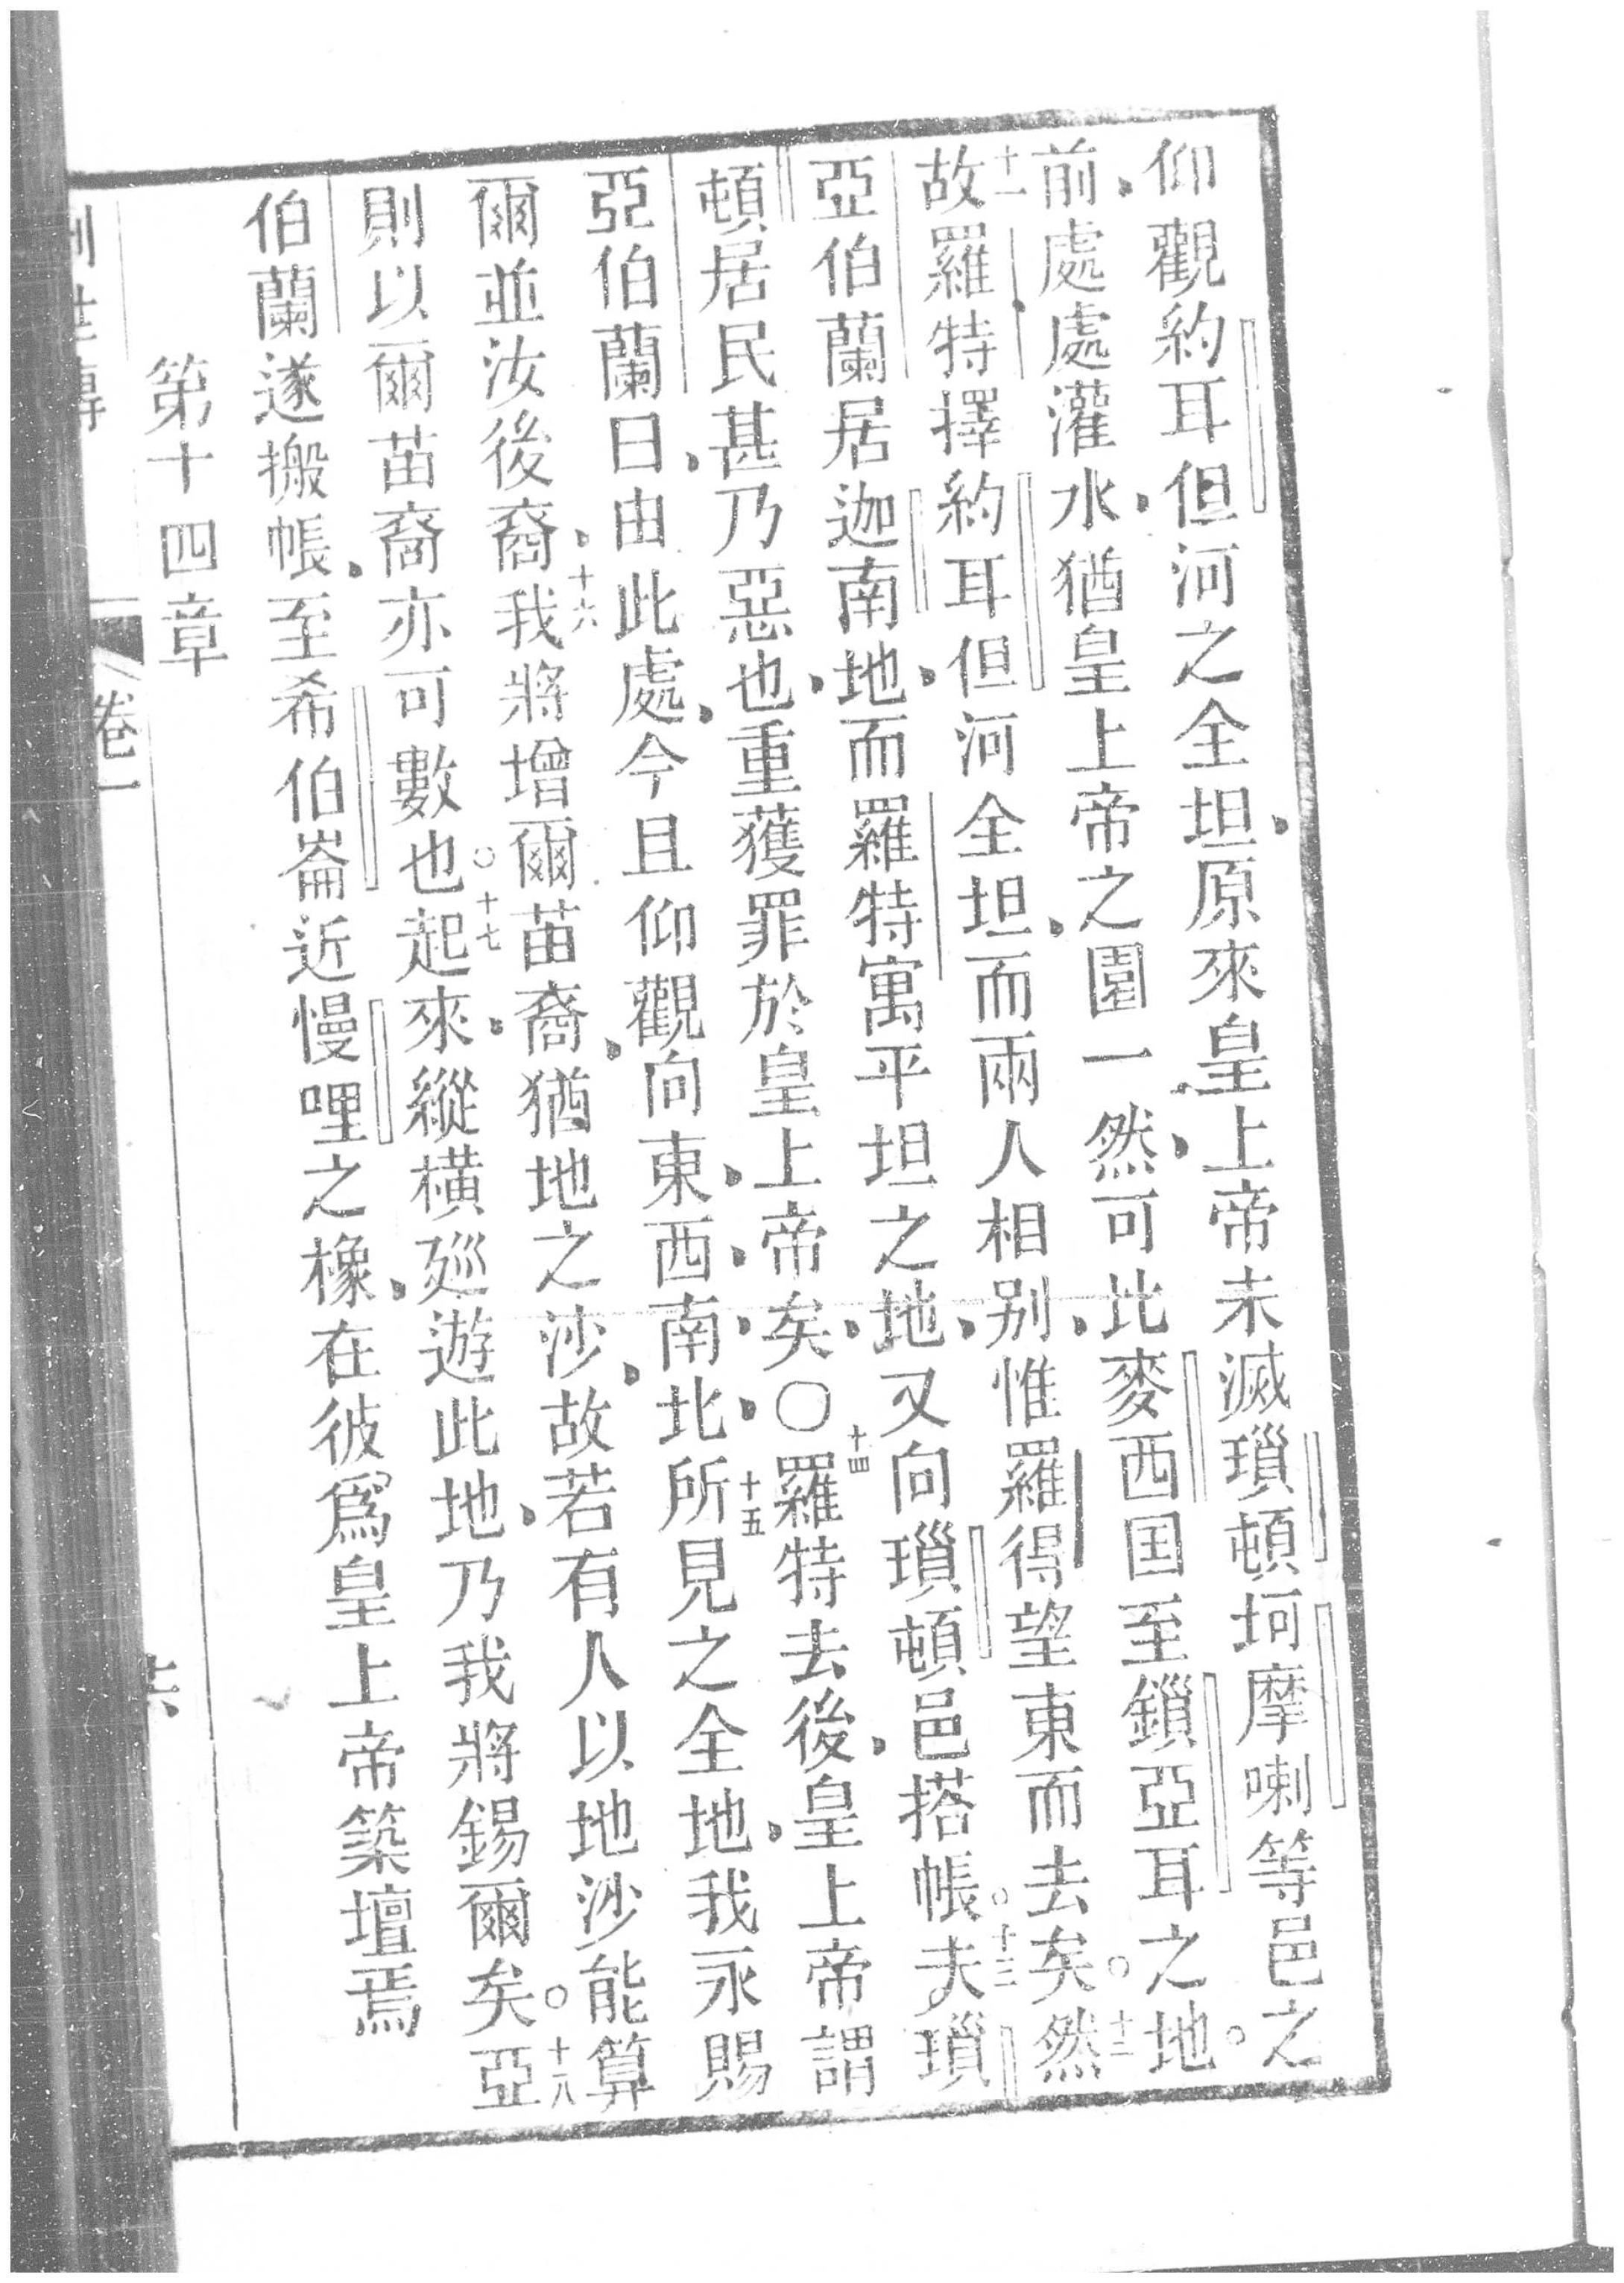 仰觀約耳但河之全坦、原來皇上帝未滅瑣頓坷摩喇等邑之
前、處處灌水、猶皇上帝之園一然、可比麥西国至鎖亞耳之地。
十一故羅特擇約耳但河全坦、而兩人相别、惟羅得望東而去矣。十二然
亞伯蘭居迦南地、而羅特寓平坦之地、又向瑣頓邑搭帳。十三夫瑣
頓居民甚乃惡也、重獲罪於皇上帝矣、〇十四羅特去後、皇上帝謂
亞伯蘭曰、由此處、今且仰觀向東、西、南、北、十五所見之全地、我永賜
爾並汝後裔、十六我將增爾苗裔、猶地之沙、故若有人以地沙能算
則以爾苗裔亦可數也。十七起來、縱橫廵遊此地、乃我將錫爾矣。十八亞
伯蘭遂搬帳、至希伯崙近慢哩之橡、在彼爲皇上帝築壇焉
第十四章
卷一